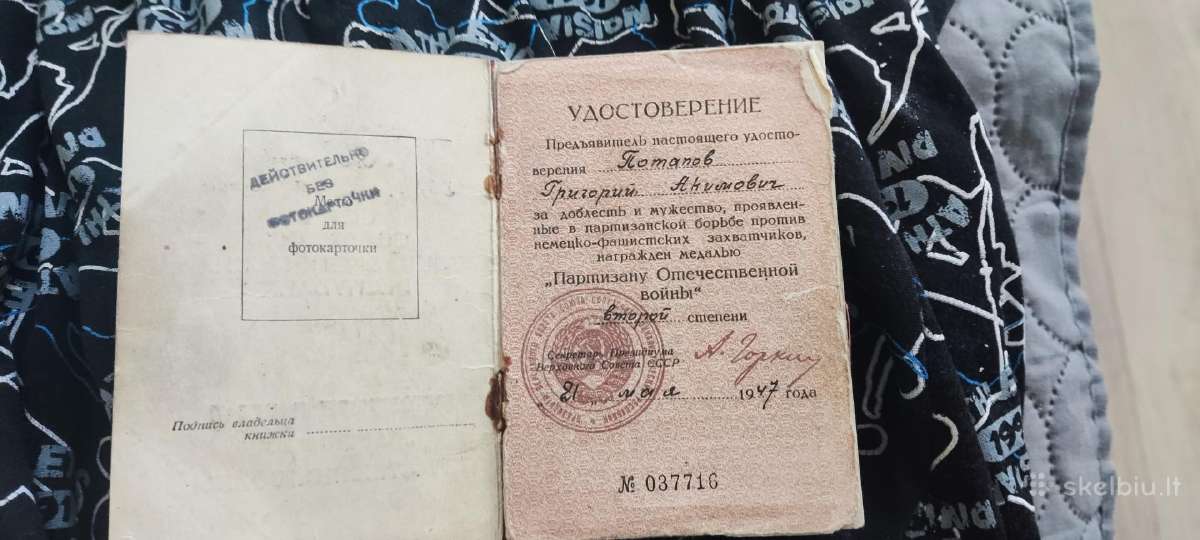 ДЕЙСТВИТЕЛЬНО
БЕЗ
ФОТОКАРТОЧКИ
для
фотокарточки
Подпись владельца
книжки
УДОСТОВЕРЕНИЕ
Предъявитель настоящего удосто-
верения Потапов
Григорий Акимович
за доблесть и мужество, проявлен-
ные в партизанской борьбе против
немецко-фашистских захватчиков,
награжден медалью
„Партизану Отечественной
войны“
второй степени
Секретарь Президиума
Верховного Совета СССР
А. Горкин
21 мая 1947 года
№ 037716
skelbiu.lt